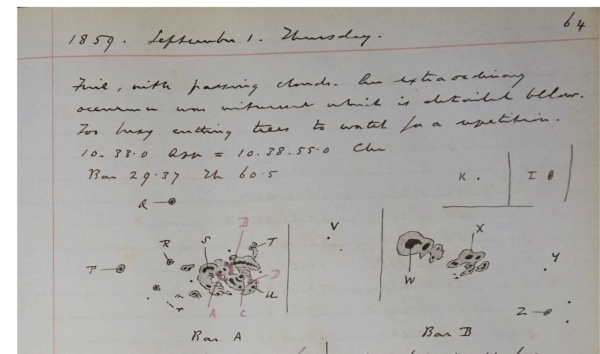 64
1859. September 1. Thursday.
Fine, with passing clouds. An extraordinary
occurrence was witnessed which is detailed below.
Too busy cutting trees to watch for a repetition.
10.33.0 App = 10.38.55.0 Chr
Bar 29.37 Th 60.5
K I
Q
B
V
R S T X
P D
W Y
A C U
Z
Bar A Bar B